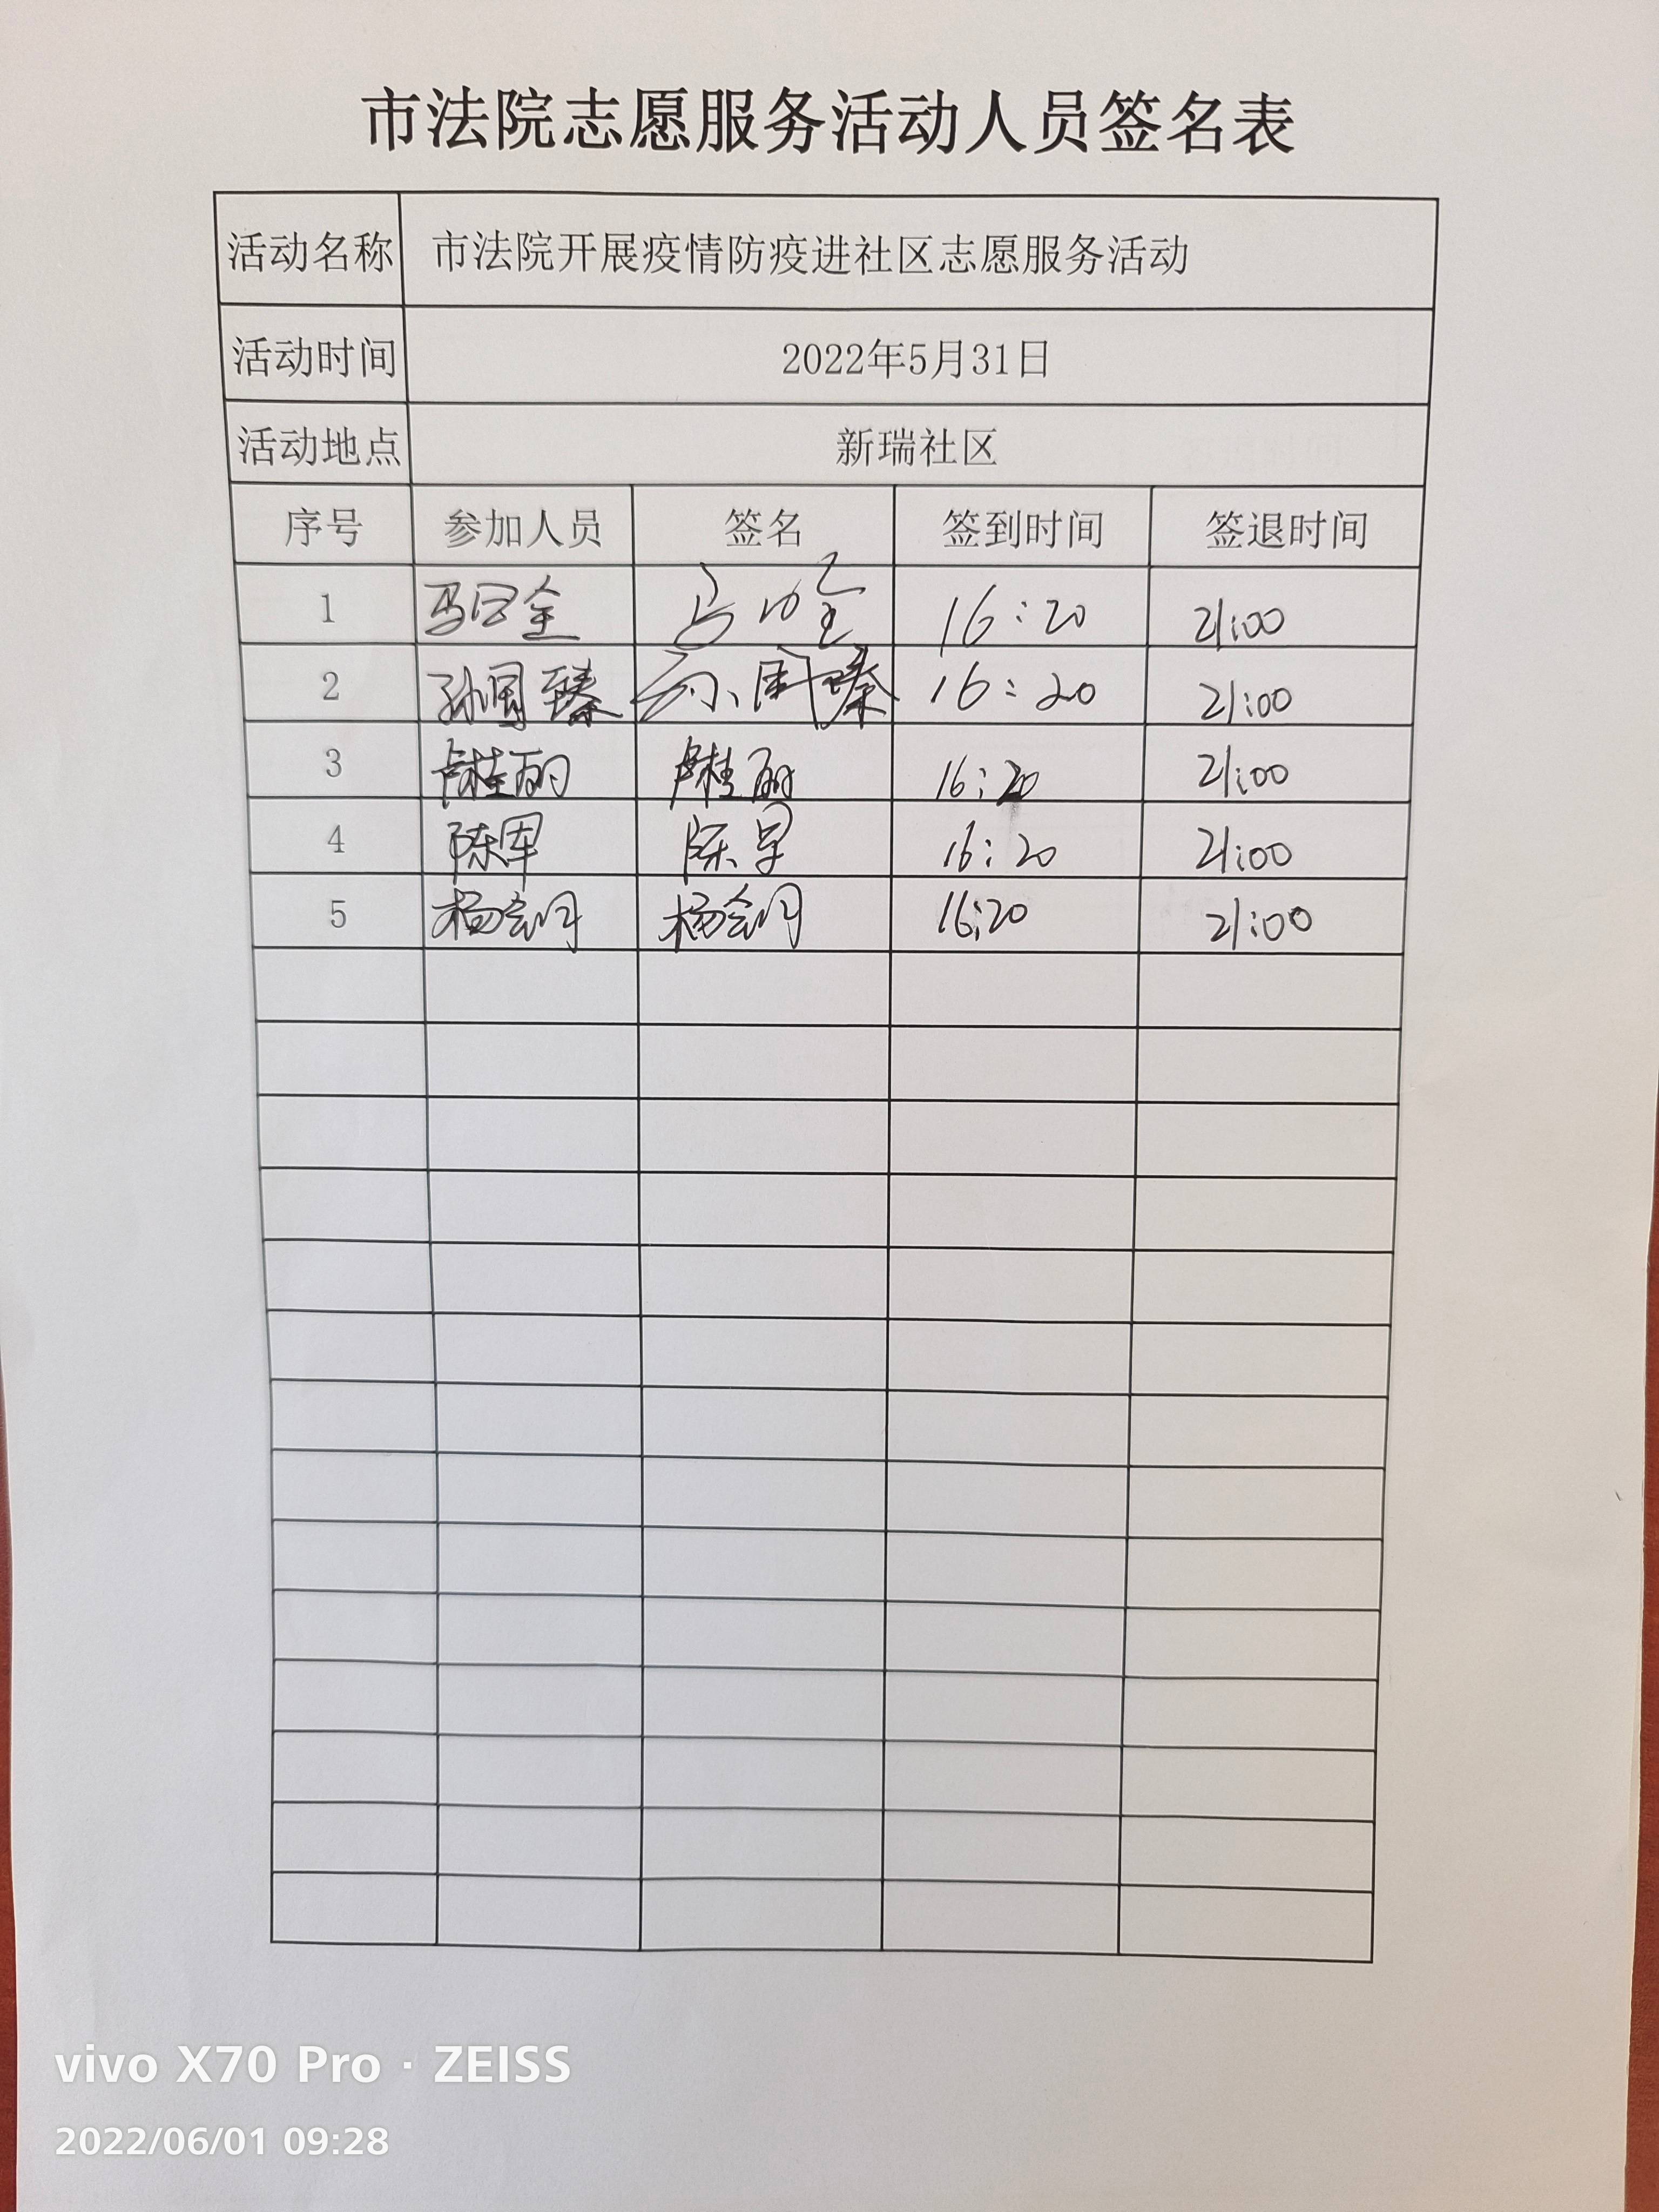 市法院志愿服务活动人员签名表
活动名称 市法院开展疫情防疫进社区志愿服务活动
活动时间 2022年5月31日
活动地点 新瑞社区
序号 参加人员 签名 签到时间 签退时间
1 16:20 21:00
2 孙国臻 孙国臻 16:20 21:00
3 卢桂丽 卢桂丽 16:20 21:00
4 陈军 陈军 16:20 21:00
5 杨会月 杨会月 16:20 21:00
vivo X70 Pro · ZEISS
2022/06/01 09:28